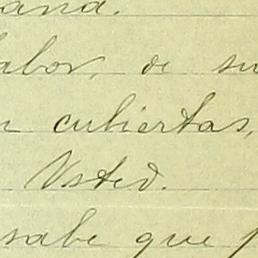 ana.
abor, de su
n cubiertas,
Usted.
sabe que p